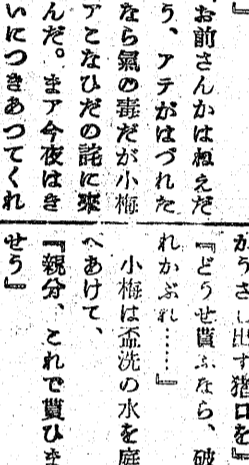 』
お前さんかはねえだ
う、アテがはづれた
なら氣の毒だが小梅
アこなひだの詫に來
んだ。まア今夜はき
いにつきあつてくれ
かうさし出す猪口を』
『どうせ貰ふなら、破
れかぶれ……』
小梅は盃洗の水を庭
へあけて、
『親分、これで貰ひま
せう』